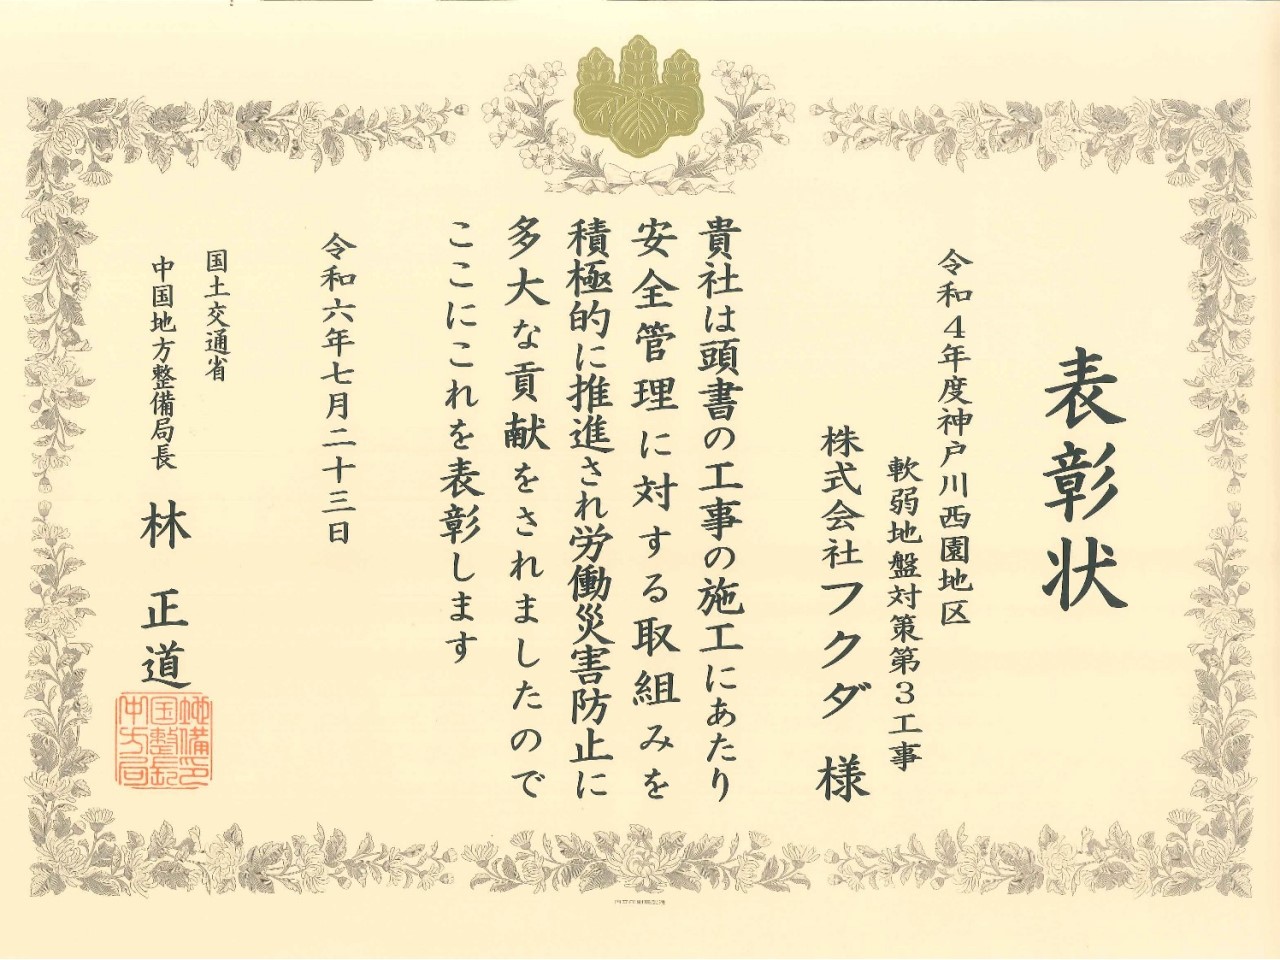 表彰状
令和4年度神戸川西園地区
軟弱地盤対策第3工事
株式会社フクダ 様
貴社は頭書の工事の施工にあたり
安全管理に対する取組みを
積極的に推進され労働災害防止に
多大な貢献をされましたので
ここにこれを表彰します
令和六年七月二十三日
国土交通省
中国地方整備局長 林 正道